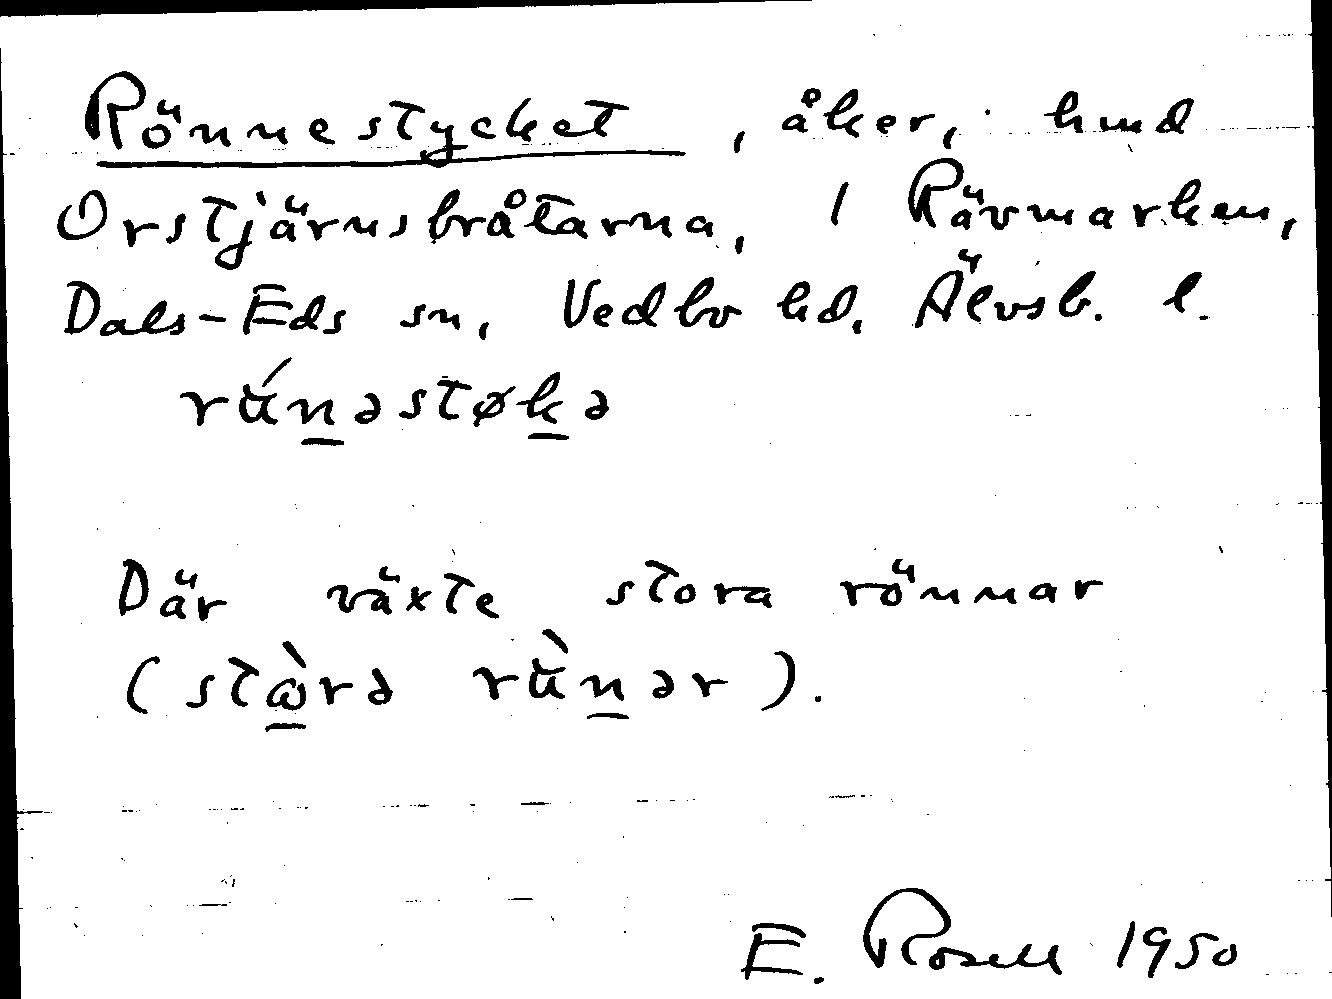 Rönnestycket, åker, hmd
Orstjärnsbråtarna, 1 Rävmarken,
Dals-Eds sn, Vedbo hd, Älvsb. l.
rǘn̲əstøk̲ə
Där växte stora rönnar
(stὼ̲rə rǜn̲ər).
E. Rosell 1950